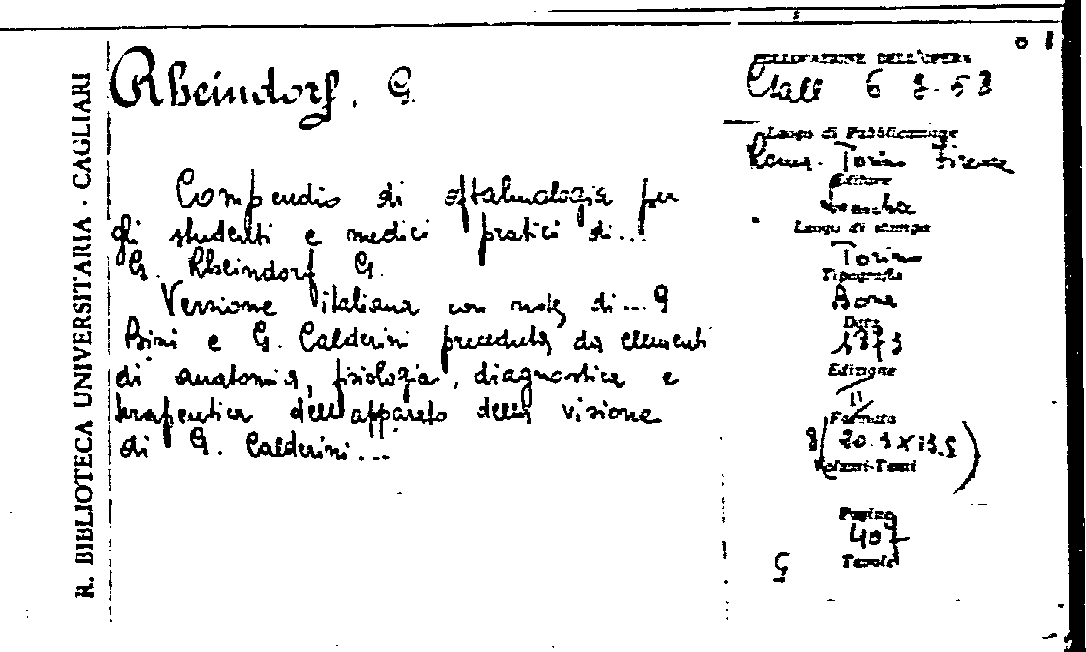 R. BIBLIOTECA UNIVERSITARIA · CAGLIARI
Rheindorf, G.
Compendio di oftalmologia per
gli studenti e medici pratici di...
G. Rheindorf G.
Versione italiana con note di... G
Bini e G. Calderini preceduta da elementi
di anatomia, fisiologia, diagnostica e
terapeutica dell'apparato della visione
di G. Calderini...
COLLOCAZIONE DELL'OPERA
6 2.58
Luogo di Pubblicazione
Roma. Torino Firenze
Editore
Luogo di stampa
Torino
Tipografia
Bona
Data
1873
Edizione
Formato
8 (20.1X13.2)
Volumi-Tomi
Pagine
407
Tavole